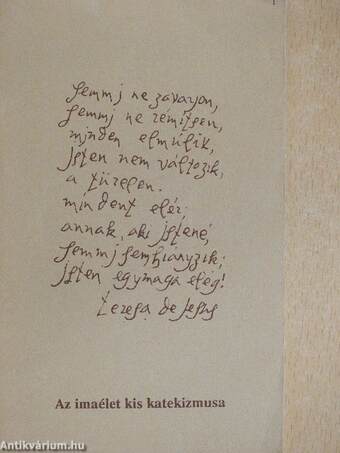 Semmi ne zavarjon,
semmi ne rémítsen,
minden elmúlik,
Isten nem változik,
a türelem
mindent elér:
annak, aki Istené,
semmi sem hiányzik;
Isten egymaga elég!
Teresa de Jesus
Az imaélet kis katekizmusa
Antikvárium.hu